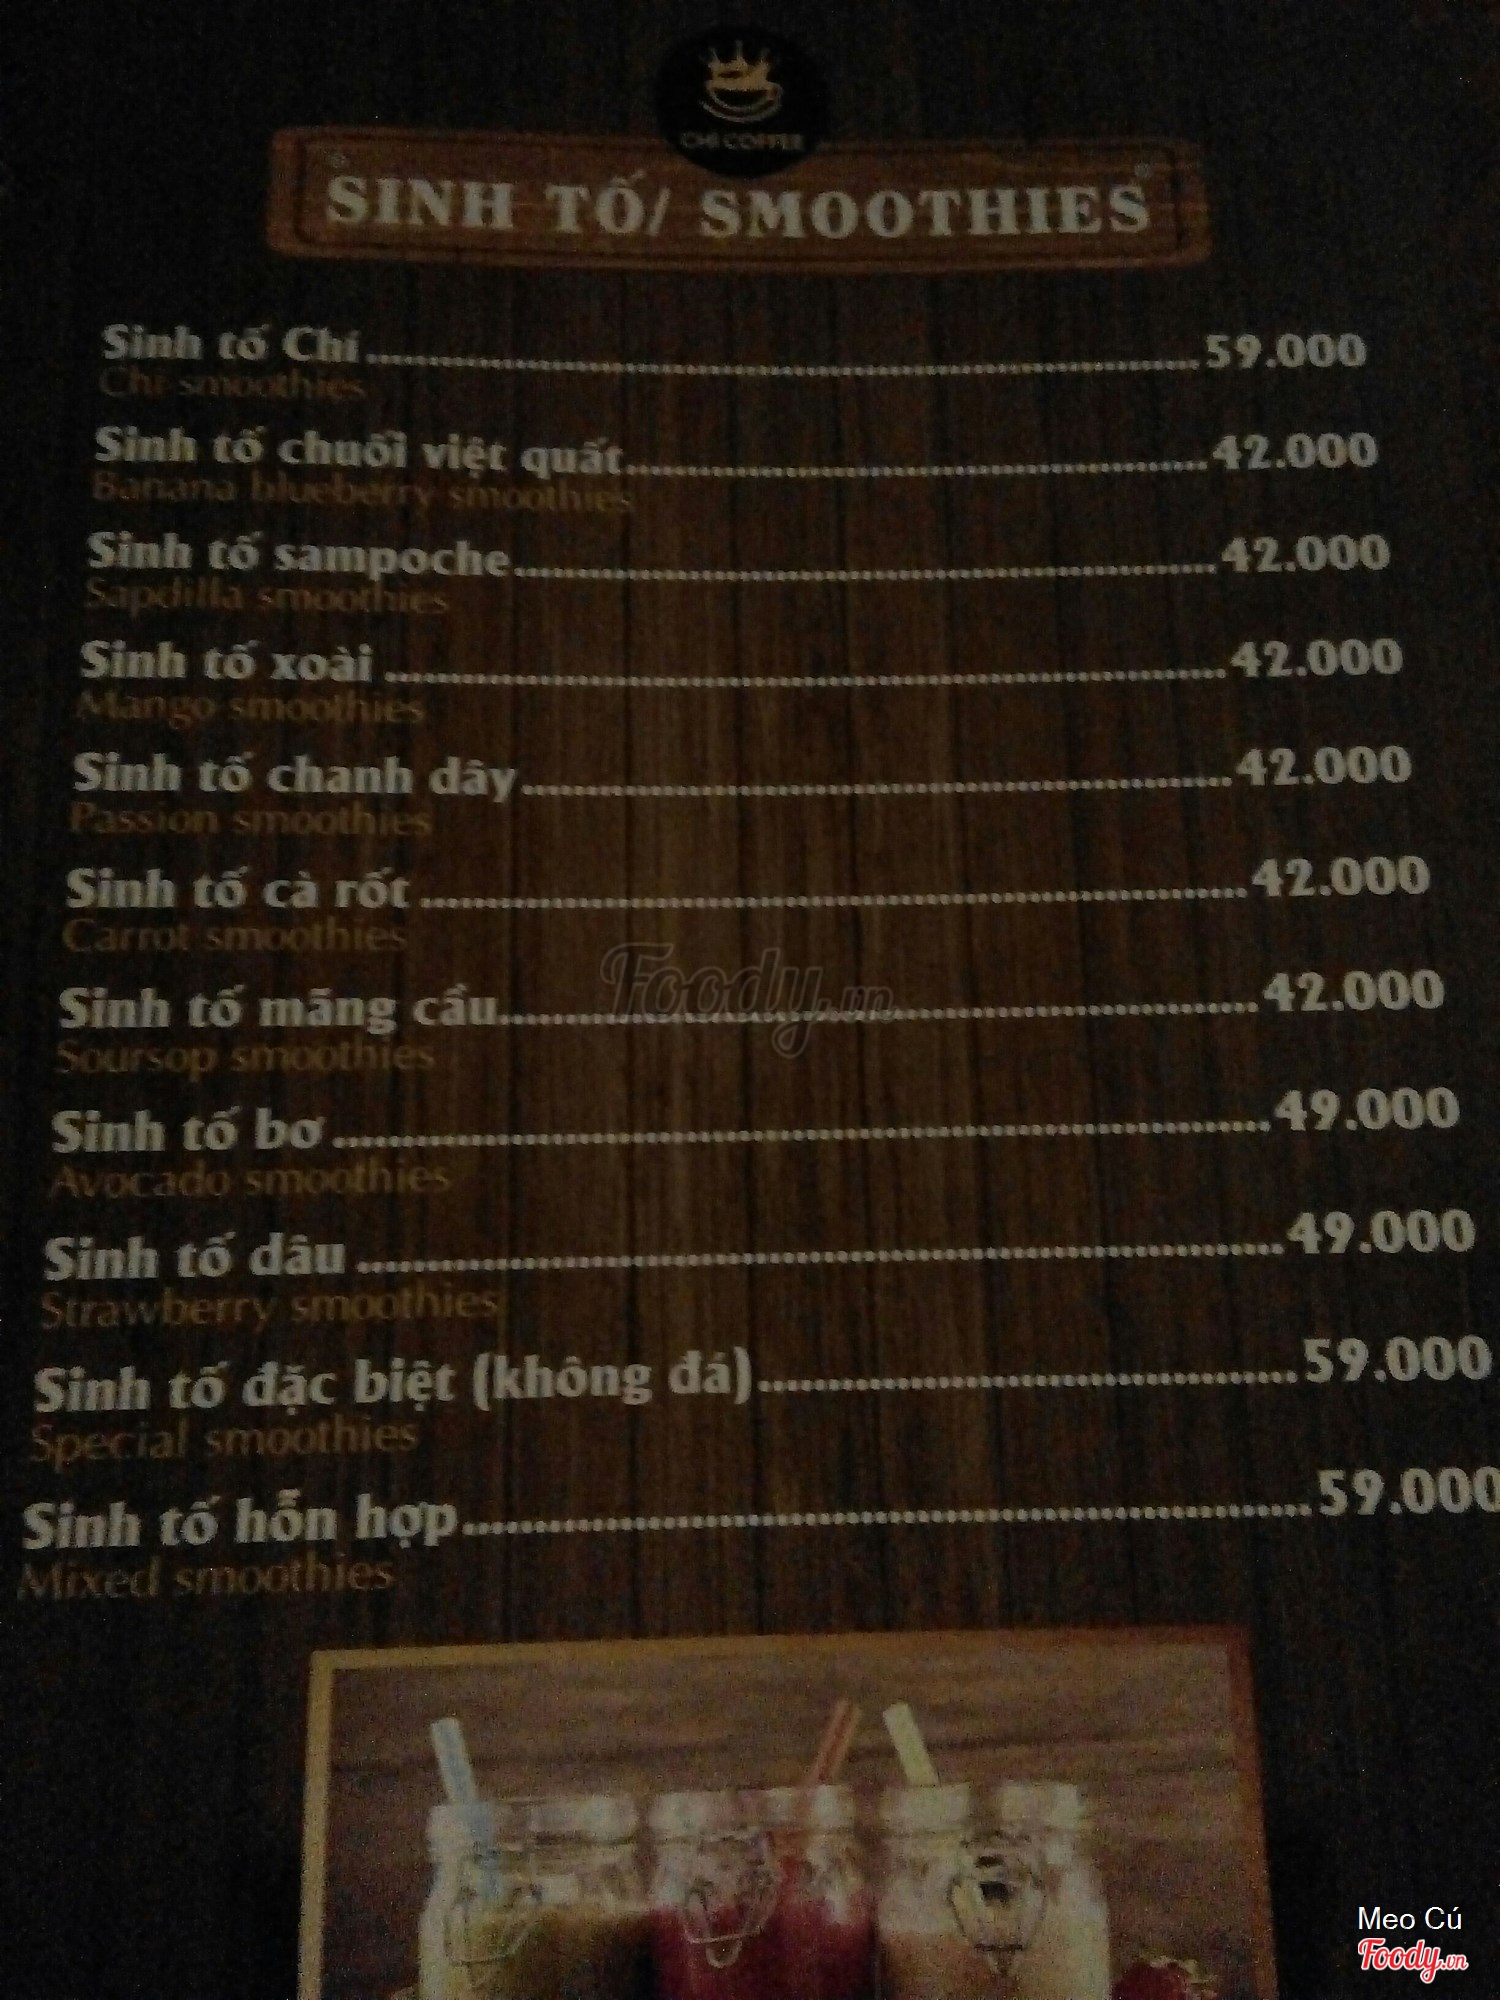 CHÍ COFFEE
SINH TỐ/ SMOOTHIES
Sinh tố Chí 59.000
Chí smoothies
Sinh tố chuối việt quất 42.000
Banana blueberry smoothies
Sinh tố sampoche 42.000
Sapdilla smoothies
Sinh tố xoài 42.000
Mango smoothies
Sinh tố chanh dây 42.000
Passion smoothies
Sinh tố cà rốt 42.000
Carrot smoothies
Sinh tố mãng cầu 42.000
Soursop smoothies
Sinh tố bơ 49.000
Avocado smoothies
Sinh tố dâu 49.000
Strawberry smoothies
Sinh tố đặc biệt (không đá) 59.000
Special smoothies
Sinh tố hỗn hợp 59.000
Mixed smoothies
Foody.vn
Meo Cú
Foody.vn